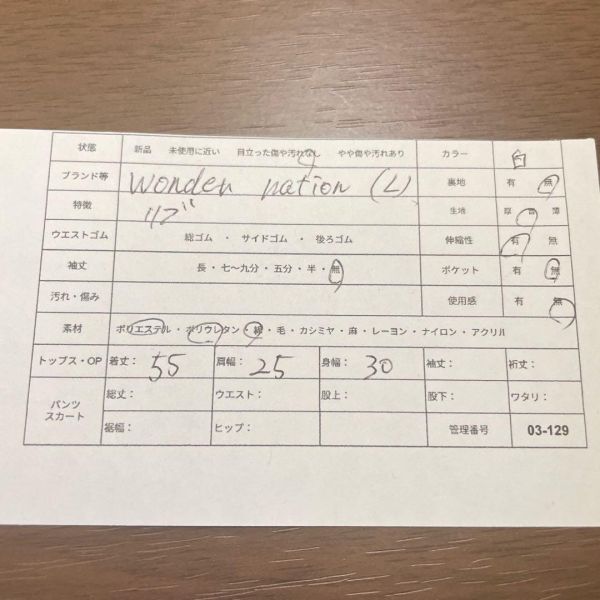 状態 新品 未使用に近い 目立った傷や汚れなし やや傷や汚れあり カラー 白
ブランド等 Wonder nation (L) 裏地 有 無
特徴 生地 厚 普 薄
ウエストゴム 総ゴム ・ サイドゴム ・ 後ろゴム 伸縮性 有 無
袖丈 長・七〜九分・五分・半・無 ポケット 有 無
汚れ・傷み 使用感 有 無
素材 ポリエステル・ポリウレタン・綿・毛・カシミヤ・麻・レーヨン・ナイロン・アクリル
トップス・OP 着丈: 55 肩幅: 25 身幅: 30 袖丈: 裄丈:
パンツ スカート 総丈: ウエスト: 股上: 股下: ワタリ:
裾幅: ヒップ: 管理番号 03-129